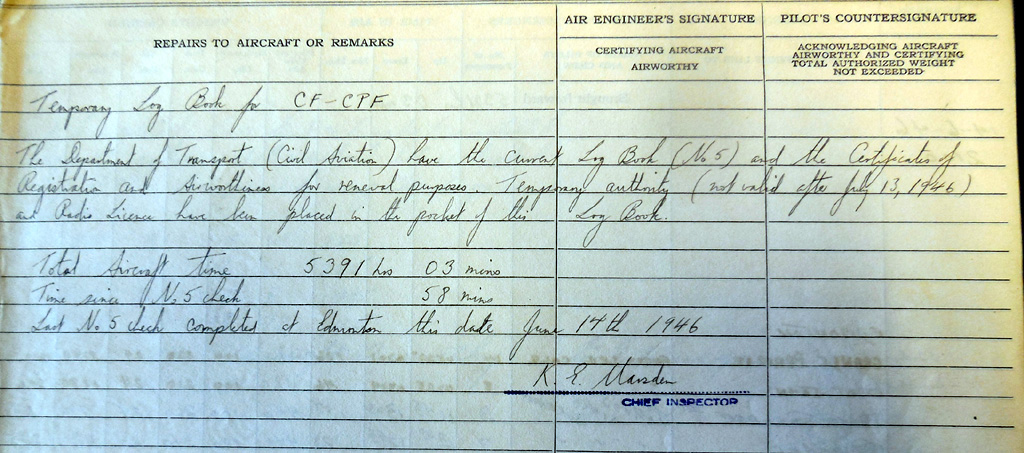 REPAIRS TO AIRCRAFT OR REMARKS
AIR ENGINEER'S SIGNATURE
CERTIFYING AIRCRAFT
AIRWORTHY
PILOT'S COUNTERSIGNATURE
ACKNOWLEDGING AIRCRAFT
AIRWORTHY AND CERTIFYING
TOTAL AUTHORIZED WEIGHT
NOT EXCEEDED
Temporary Log Book for CF-CPF
The Department of Transport (Civil Aviation) have the current Log Book (No 5) and the Certificates of
Registration and Airworthiness for renewal purposes. Temporary authority (not valid after July 13, 1946)
and Radio Licence have been placed in the pocket of this Log Book.
Total Aircraft time 5391 hrs 03 mins
Time since No 5 check 58 mins
Last No 5 check completed at Edmonton this date June 14th 1946
K. E. Marsden
CHIEF INSPECTOR